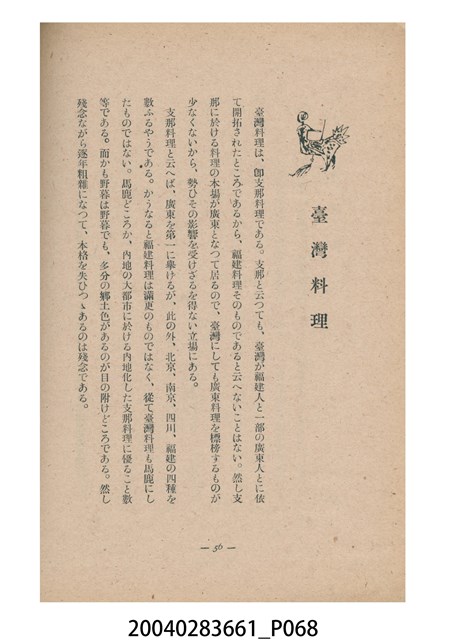 臺灣料理
臺灣料理は、卽支那料理である。支那と云つても、臺灣が福建人と一部の廣東人とに依
て開拓されたところであるから、福建料理そのものであると云へないことはない。然し支
那に於ける料理の本場が廣東となつて居るので、臺灣にしても廣東料理を標榜するものが
少なくないから、勢ひその影響を受けざるを得ない立場にある。
支那料理と云へば、廣東を第一に擧げるが、此の外、北京、南京、四川、福建の四種を
數ふるやうである。かうなると福建料理は滿更のものではなく、從て臺灣料理も馬鹿にし
たものではない。馬鹿どころか、内地の大都市に於ける内地化した支那料理に優ること數
等である。而かも野暮は野暮でも、多分の鄕土色があるのが目の附けどころである。然し
殘念ながら逐年粗雜になつて、本格を失ひつゝあるのは殘念である。
— 56 —
20040283661_P068